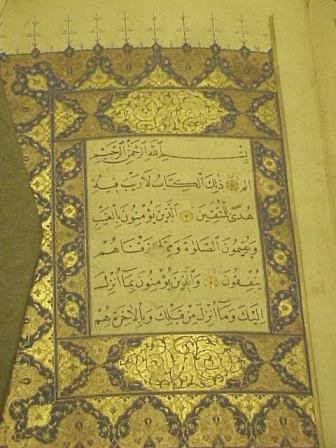 بسم الله الرحمن الرحيم
الم ذلك الكتاب لا ريب فيه
هدى للمتقين الذين يؤمنون بالغيب
ويقيمون الصلوة ومما رزقناهم
ينفقون والذين يؤمنون بما أنزل
إليك وما أنزل من قبلك وبالآخرة هم